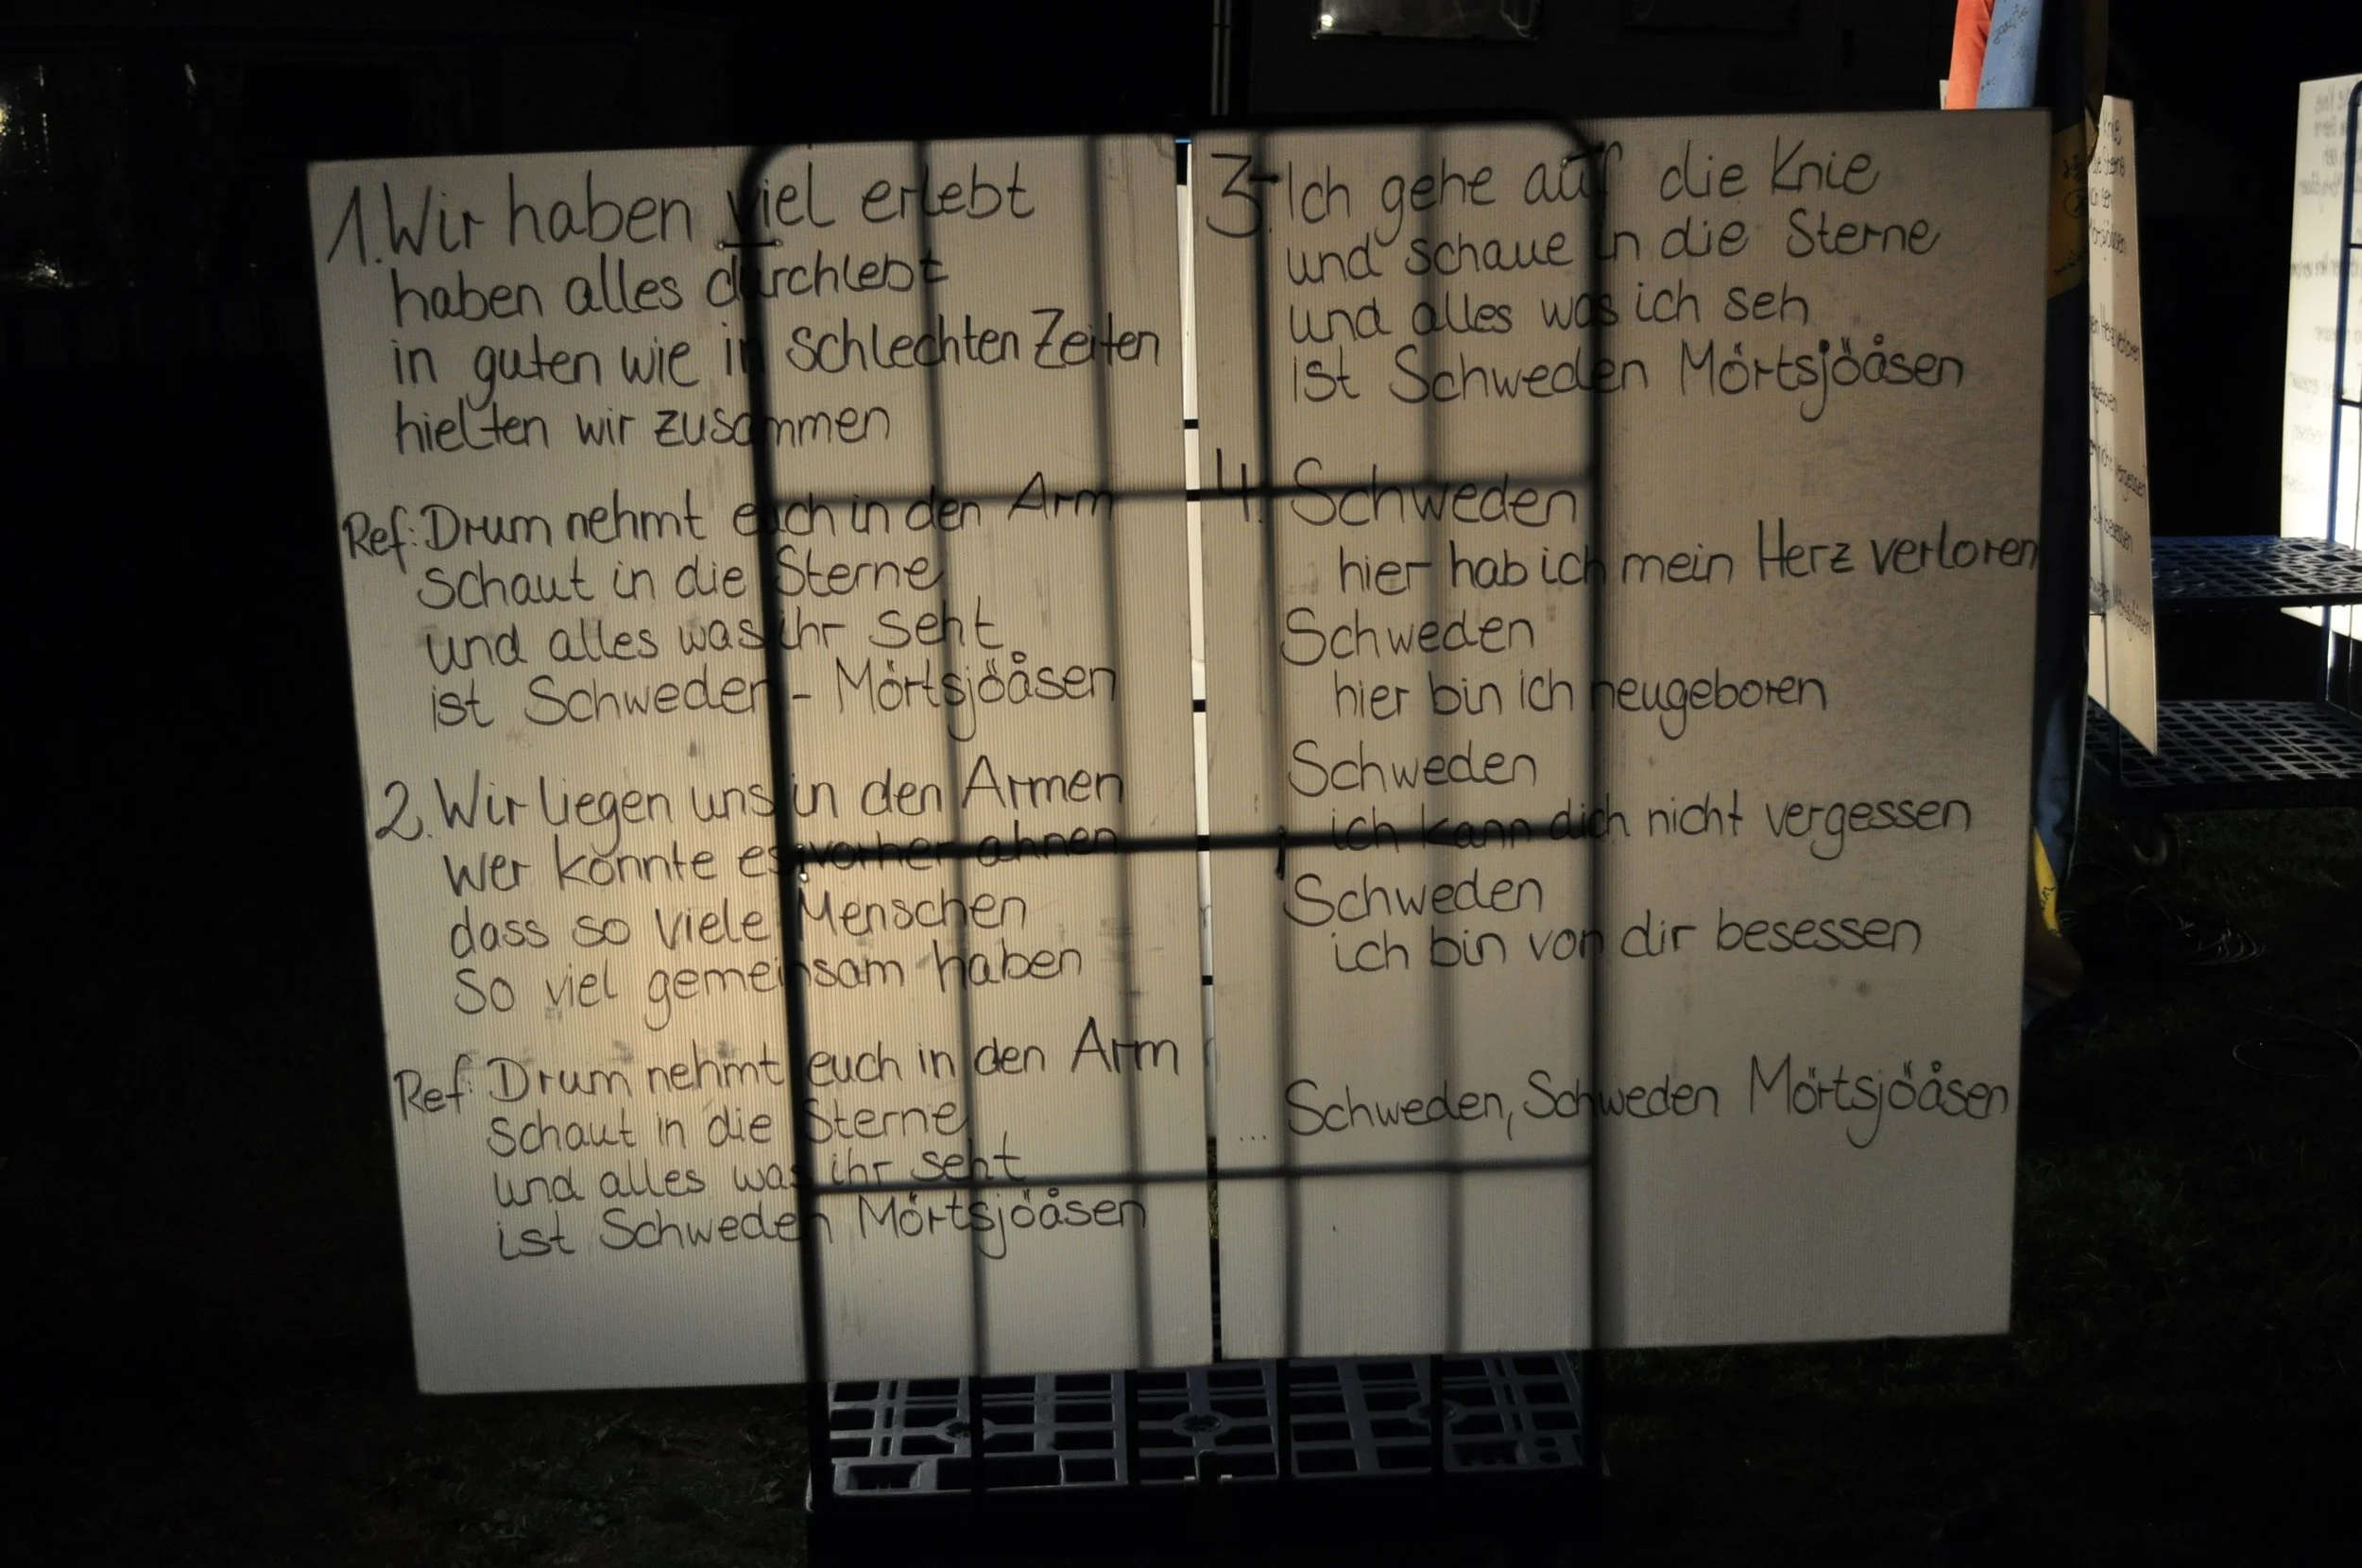 1. Wir haben viel erlebt
haben alles durchlebt
in guten wie in schlechten Zeiten
hielten wir zusammen
Ref: Drum nehmt euch in den Arm
schaut in die Sterne
und alles was ihr seht
ist Schweden - Mörtsjöåsen
2. Wir liegen uns in den Armen
wer konnte es vorher ahnen
dass so viele Menschen
so viel gemeinsam haben
Ref: Drum nehmt euch in den Arm
schaut in die Sterne
und alles was ihr seht
ist Schweden Mörtsjöåsen
3. Ich gehe auf die Knie
und schaue in die Sterne
und alles was ich seh
ist Schweden Mörtsjöåsen
4. Schweden
hier hab ich mein Herz verloren
Schweden
hier bin ich neugeboren
Schweden
ich kann dich nicht vergessen
Schweden
ich bin von dir besessen
... Schweden, Schweden Mörtsjöåsen